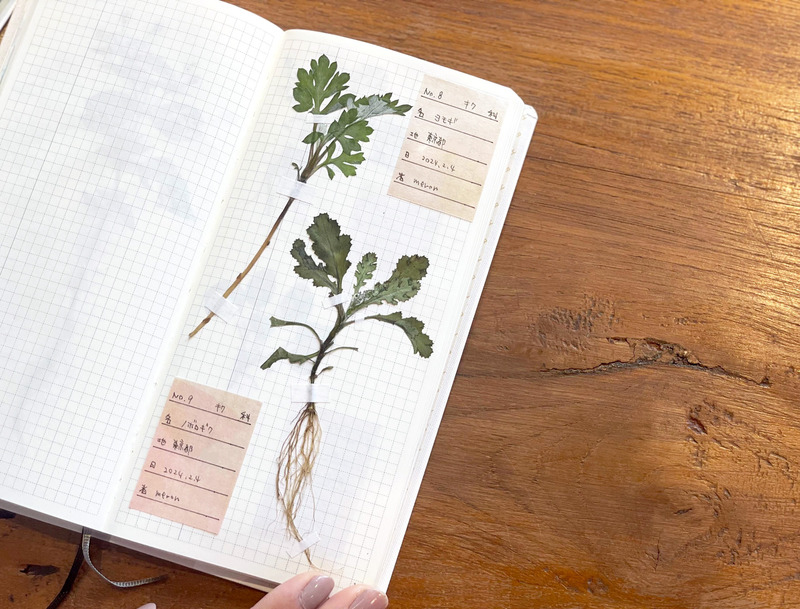 No. 8 キク 科
名 ヨモギ
地 東京都
日 2024.2.4
著 meron
No. 9 キク 科
名 ノボロギク
地 東京都
日 2024.2.4
著 meron